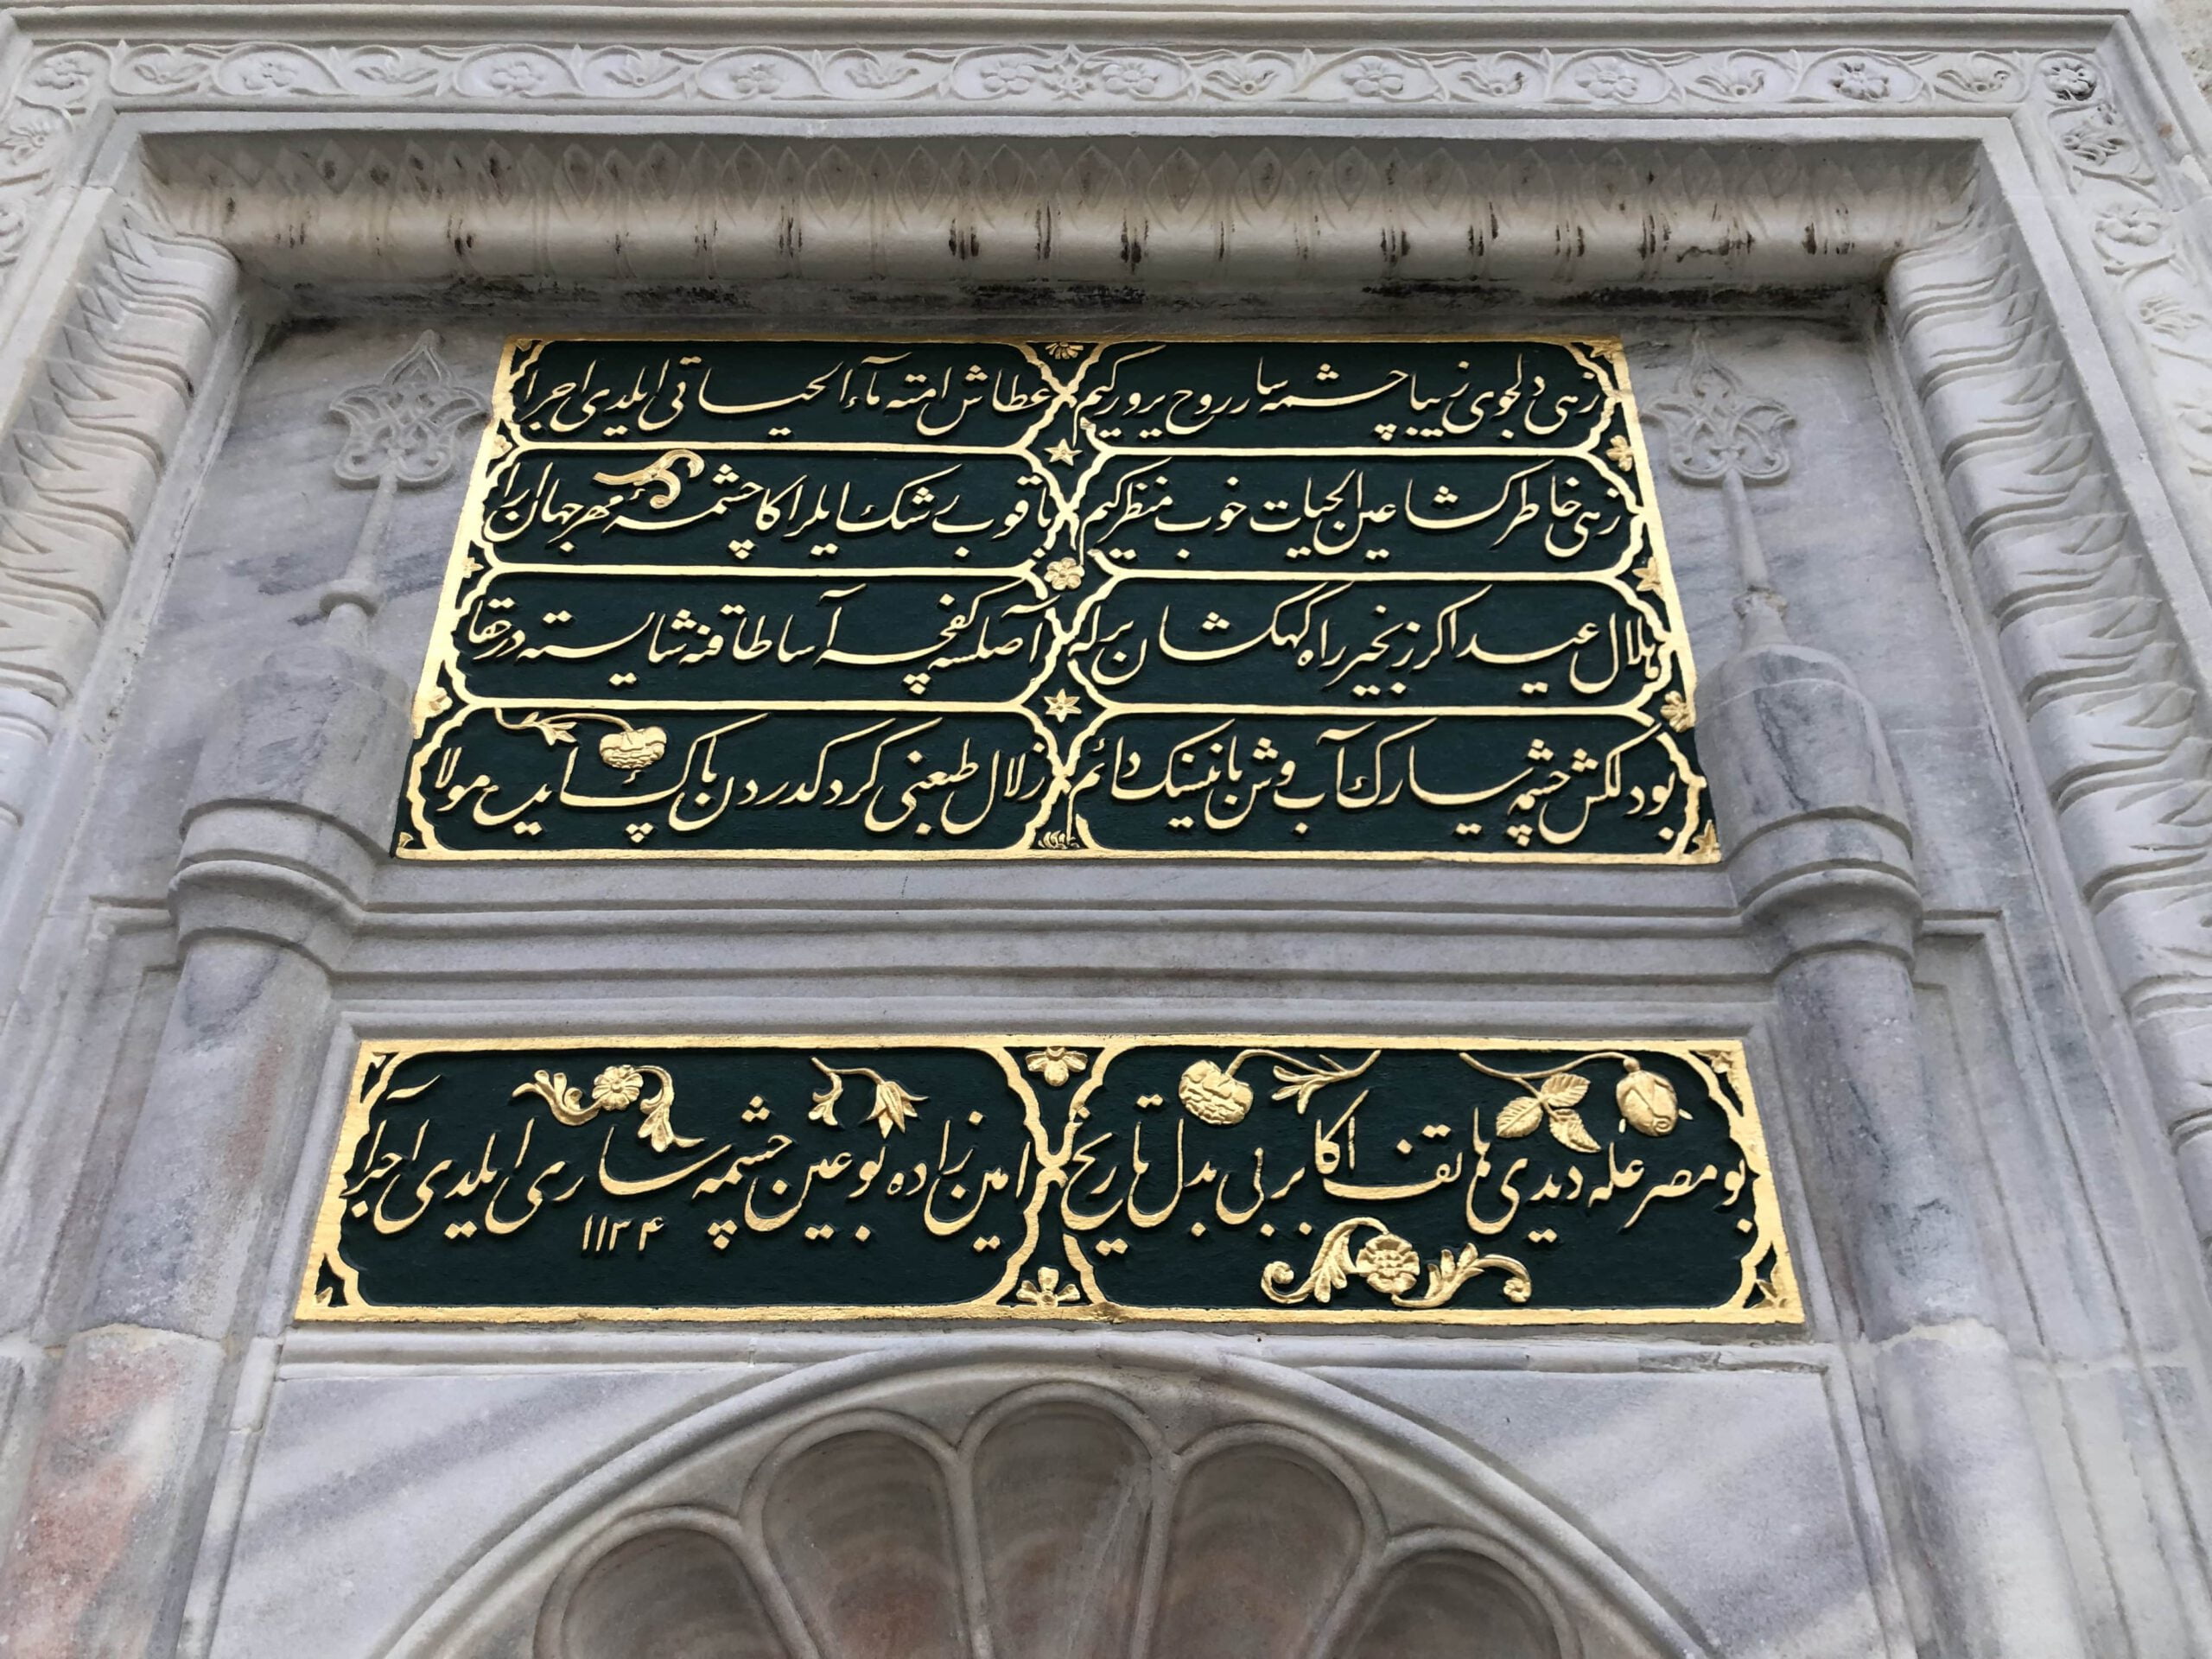 زهی دلجوی زیبا چشمه سار روح پرور کیم
عطاش امته ماء الحیاتی ایلدی اجرا
زهی خاطر کشا عین الحیات خوب منظر کیم
باقوب رشک ایلر اکا چشمهٔ مهر جهان ارا
هلال عید اکر زنجیر راه کهکشان برله
آصلسه کفچه آسا طاقنه شایسته در حقا
بو دلکش چشمه سارک آب وش بانیسنک دائم
زلال طبعنی کرد کدردن پاک ایده مولا
بو مصرعله دیدی هاتف اکا بر بی بدل تاریخ
امین زاده بو عین چشمه ساری ایلدی اجرا
١١٣۴